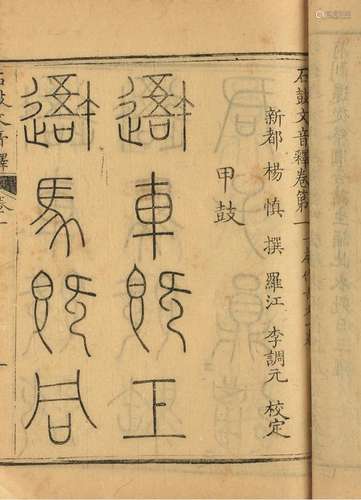 石鼓文音釋卷第一
新都 楊慎 撰 羅江 李調元 校定
甲鼓
車既工
馬既同
石鼓文音釋 卷一